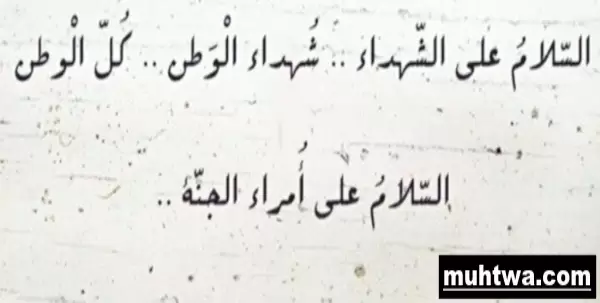 السّلامُ على الشّهداء .. شُهداء الْوَطن .. كُلّ الْوطن
السّلامُ على أُمراء الجنّة ..
muhtwa.com